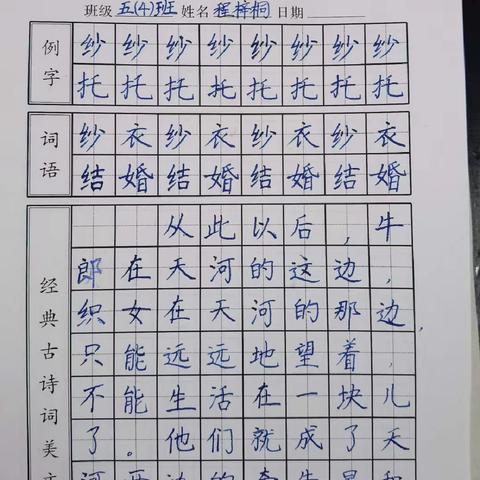 班级 五(4)班 姓名 程梓桐 日期
例字
纱纱纱纱纱纱纱纱
托托托托托托托托
词语
纱衣纱衣纱衣纱衣
结婚结婚结婚结婚
经典古诗词美文
从此以后,牛
郎在天河的这边,
织女在天河的那边,
只能远远地望着,
不能生活在一块儿
了。他们就成了天
河两边的牵牛星和